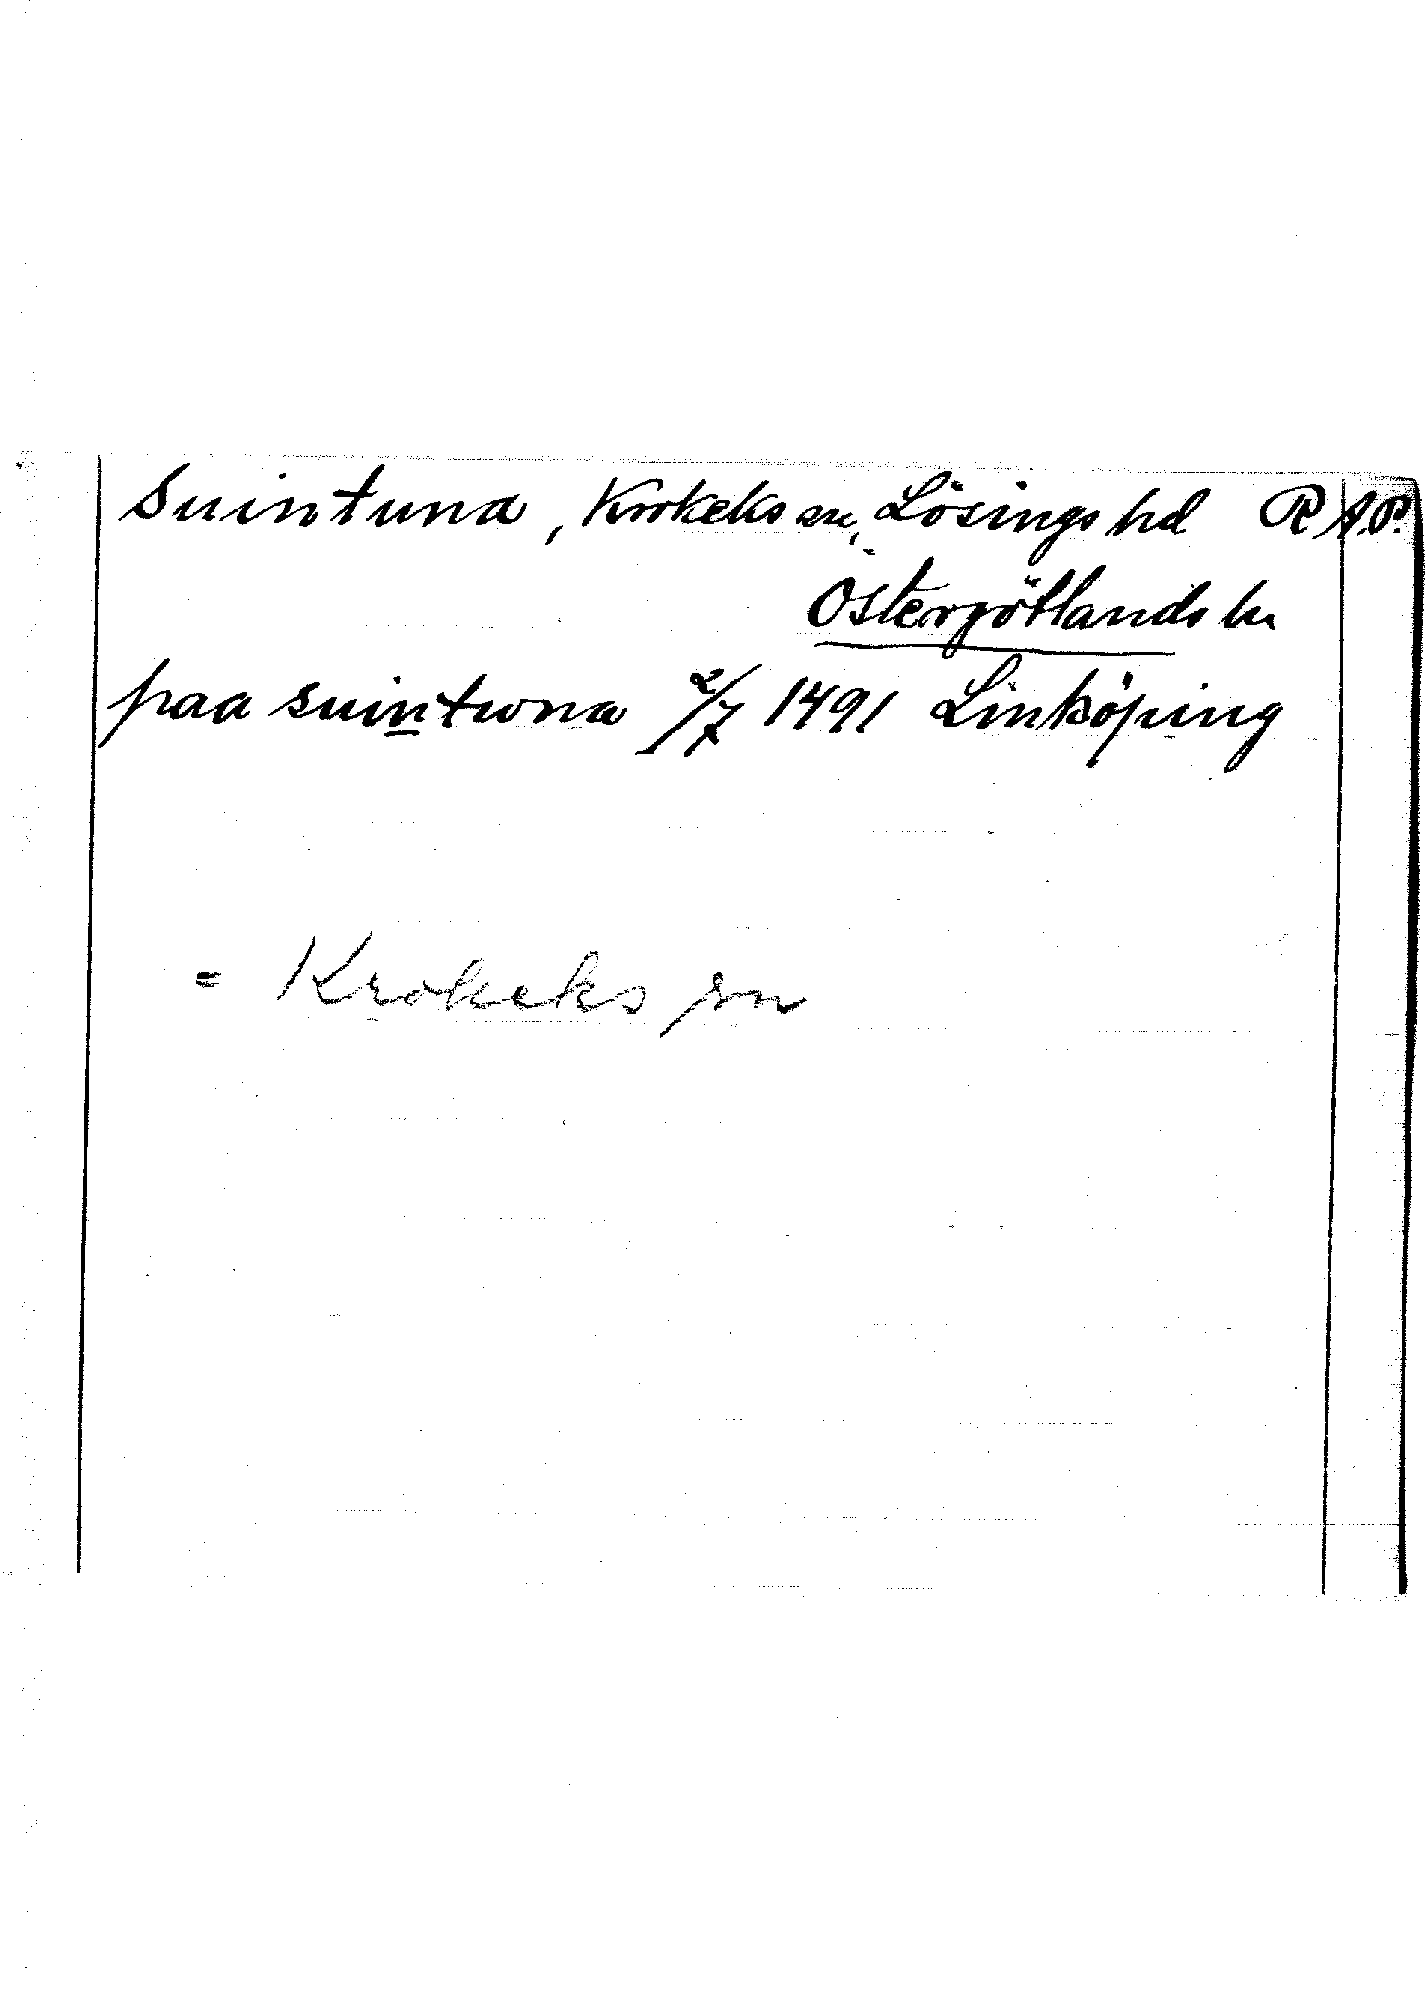 Suintuna, Krokeks sn, Lösings hd R A.P.
Östergötlands ln
paa suintwna 2/7 1491 Linköping
= Krokeks sn